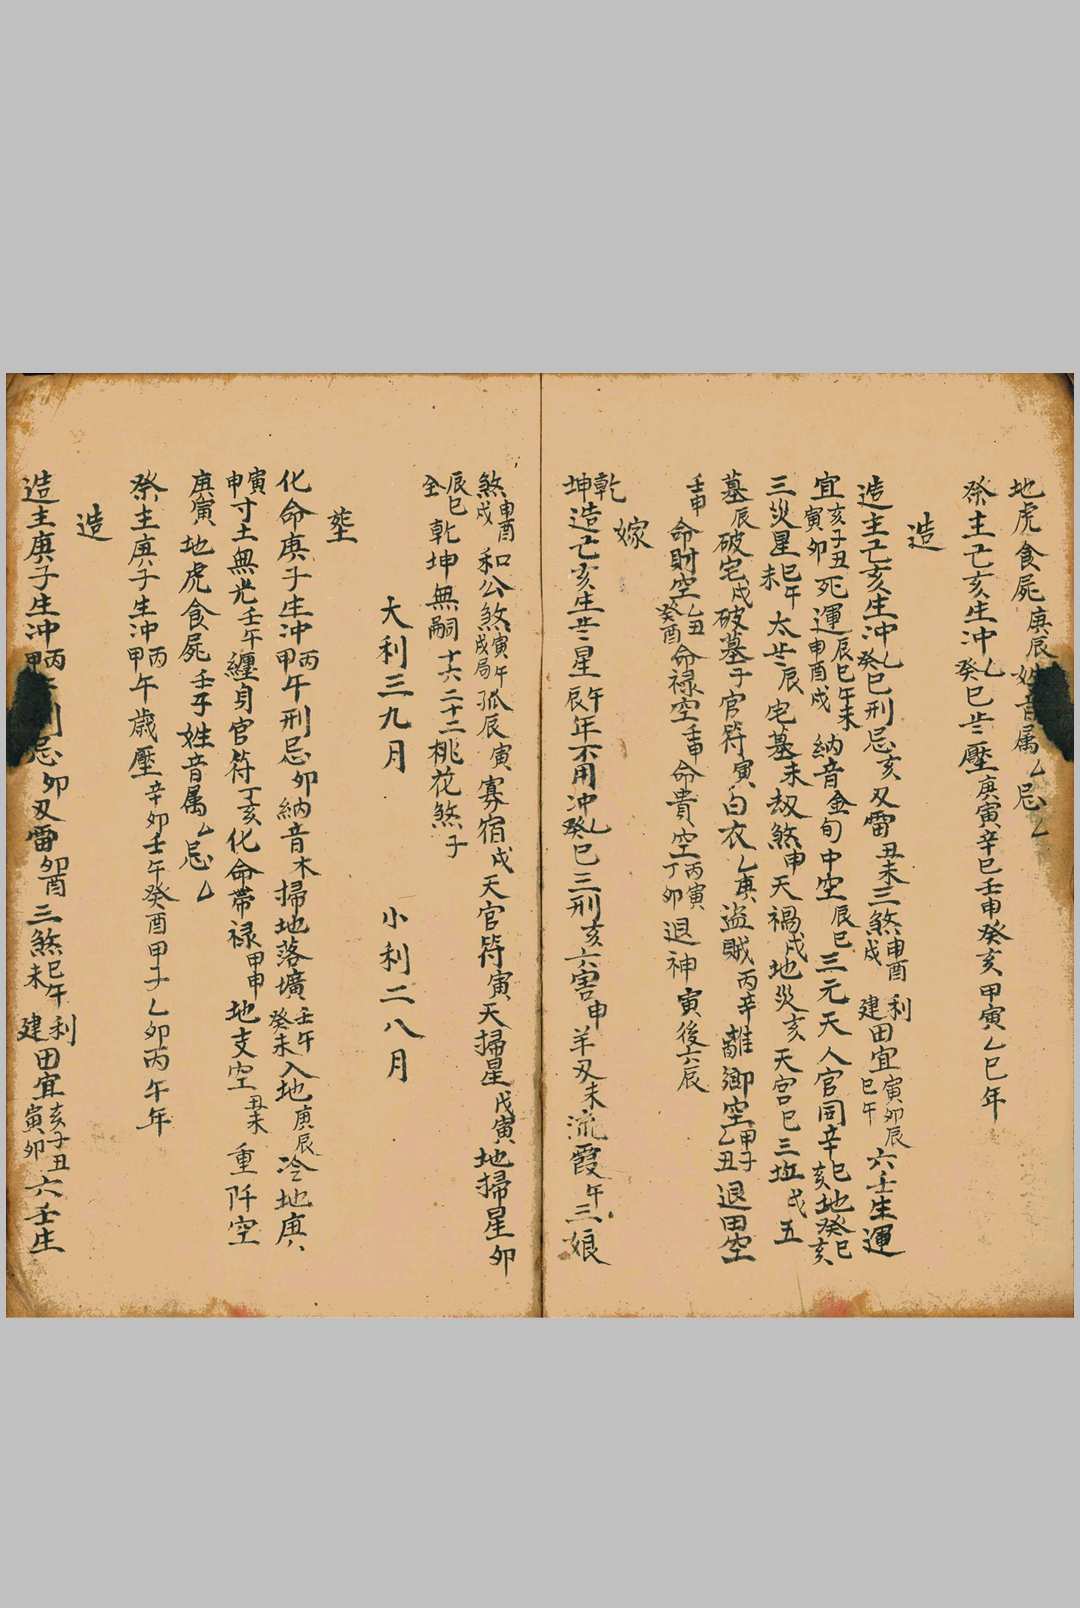 地虎食屍庚辰姓音属乙忌乙
祭主己亥生沖乙癸巳𡵈壓庚寅辛巳壬申癸亥甲寅乙巳年
造
造主己亥生沖乙癸巳刑忌亥又雷丑未三煞申酉戌利建田宜寅卯辰巳午六壬生運
宜亥子丑寅卯死運辰巳午未申酉戌納音金旬中空辰巳三元天人官同辛巳亥地癸巳亥
三災星巳午未太𡵈辰宅墓未劫煞申天禍戌地災亥天宫巳三坵戌五
墓辰破宅戌破墓子官符寅白衣乙庚盗賊丙辛離鄉空甲子乙丑退田空
壬申命財空乙丑癸酉命禄空壬申命貴空丙寅丁卯退神寅後六辰
嫁
乾坤造己亥生𡵈星午辰年不用沖乙癸巳三刑亥六害申羊刃未流霞午三娘
煞申酉戌和公煞寅午戌局孤辰寅寡宿戌天官符寅天掃星戊寅地掃星卯
辰巳全乾坤無嗣十六二十二桃花煞子
大利三九月　小利二八月
塟
化命庚子生沖丙甲午刑忌卯納音木掃地落壙壬午癸未入地庚辰冷地庚
寅申寸土無光壬午纏身官符丁亥化命帶禄甲申地支空丑未重阡空
庚寅地虎食屍壬子姓音属乙忌乙
祭主庚子生沖丙甲午歲壓辛卯壬午癸酉甲子乙卯丙午年
造
造主庚子生沖丙甲午刑忌卯又雷卯酉三煞巳午未利建田宜亥子丑寅卯六壬生